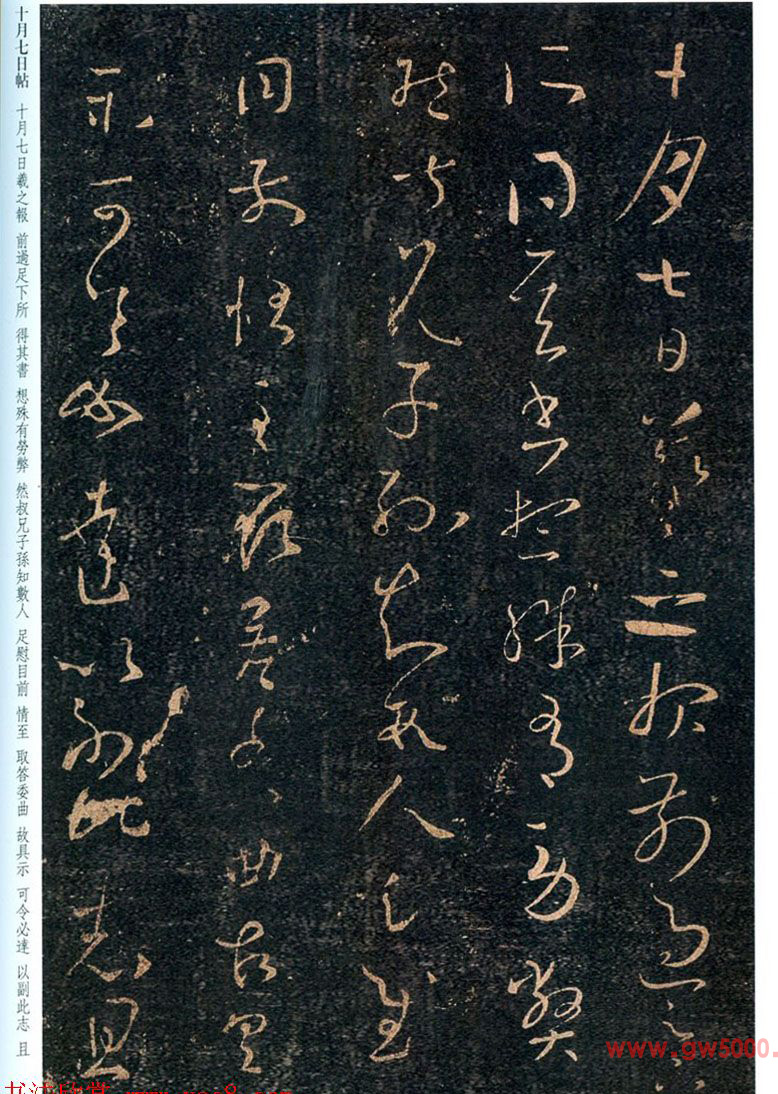 十月七日羲之報前過足下
所得其書想殊有勞弊
然叔兄子孫知數人足慰
目前情至取答委曲故具
示可令必達以副此志且
十月七日帖 十月七日羲之報 前過足下所 得其書 想殊有勞弊 然叔兄子孫知數人 足慰目前 情至 取答委曲 故具示 可令必達 以副此志 且
www.gw5000.
书法欣赏